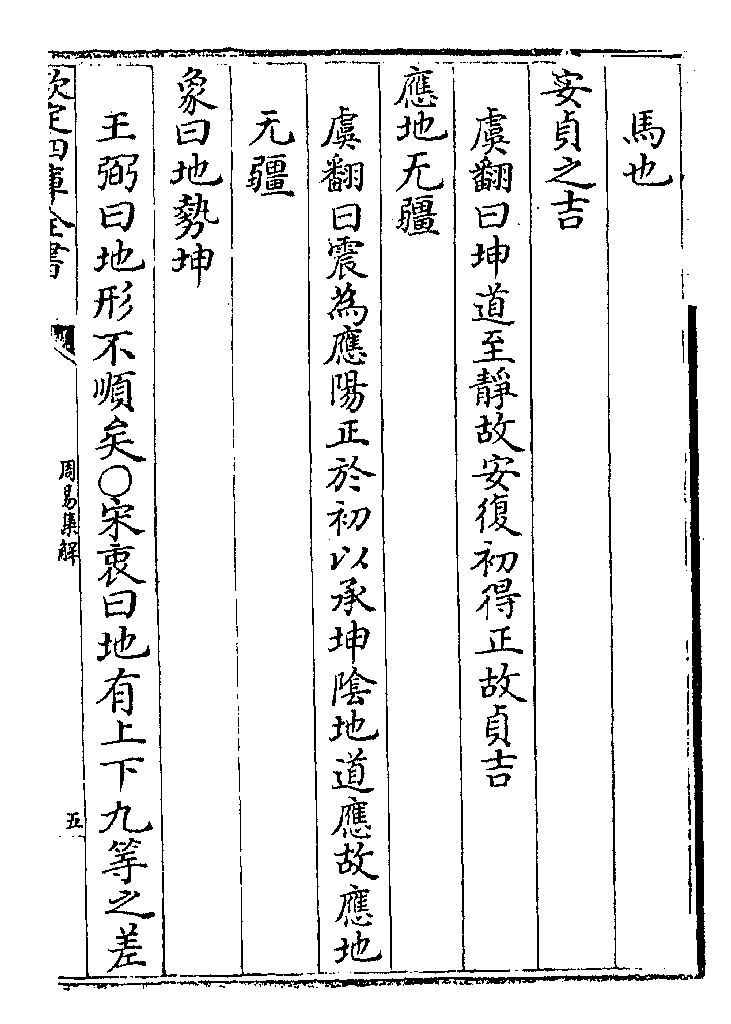 馬也
安貞之吉
虞翻曰坤道至靜故安復初得正故貞吉
應地无疆
虞翻曰震為應陽正於初以承坤陰地道應故應地
无疆
象曰地勢坤
王弼曰地形不順矣〇宋衷曰地有上下九等之差
欽定四庫全書
周易集解
五